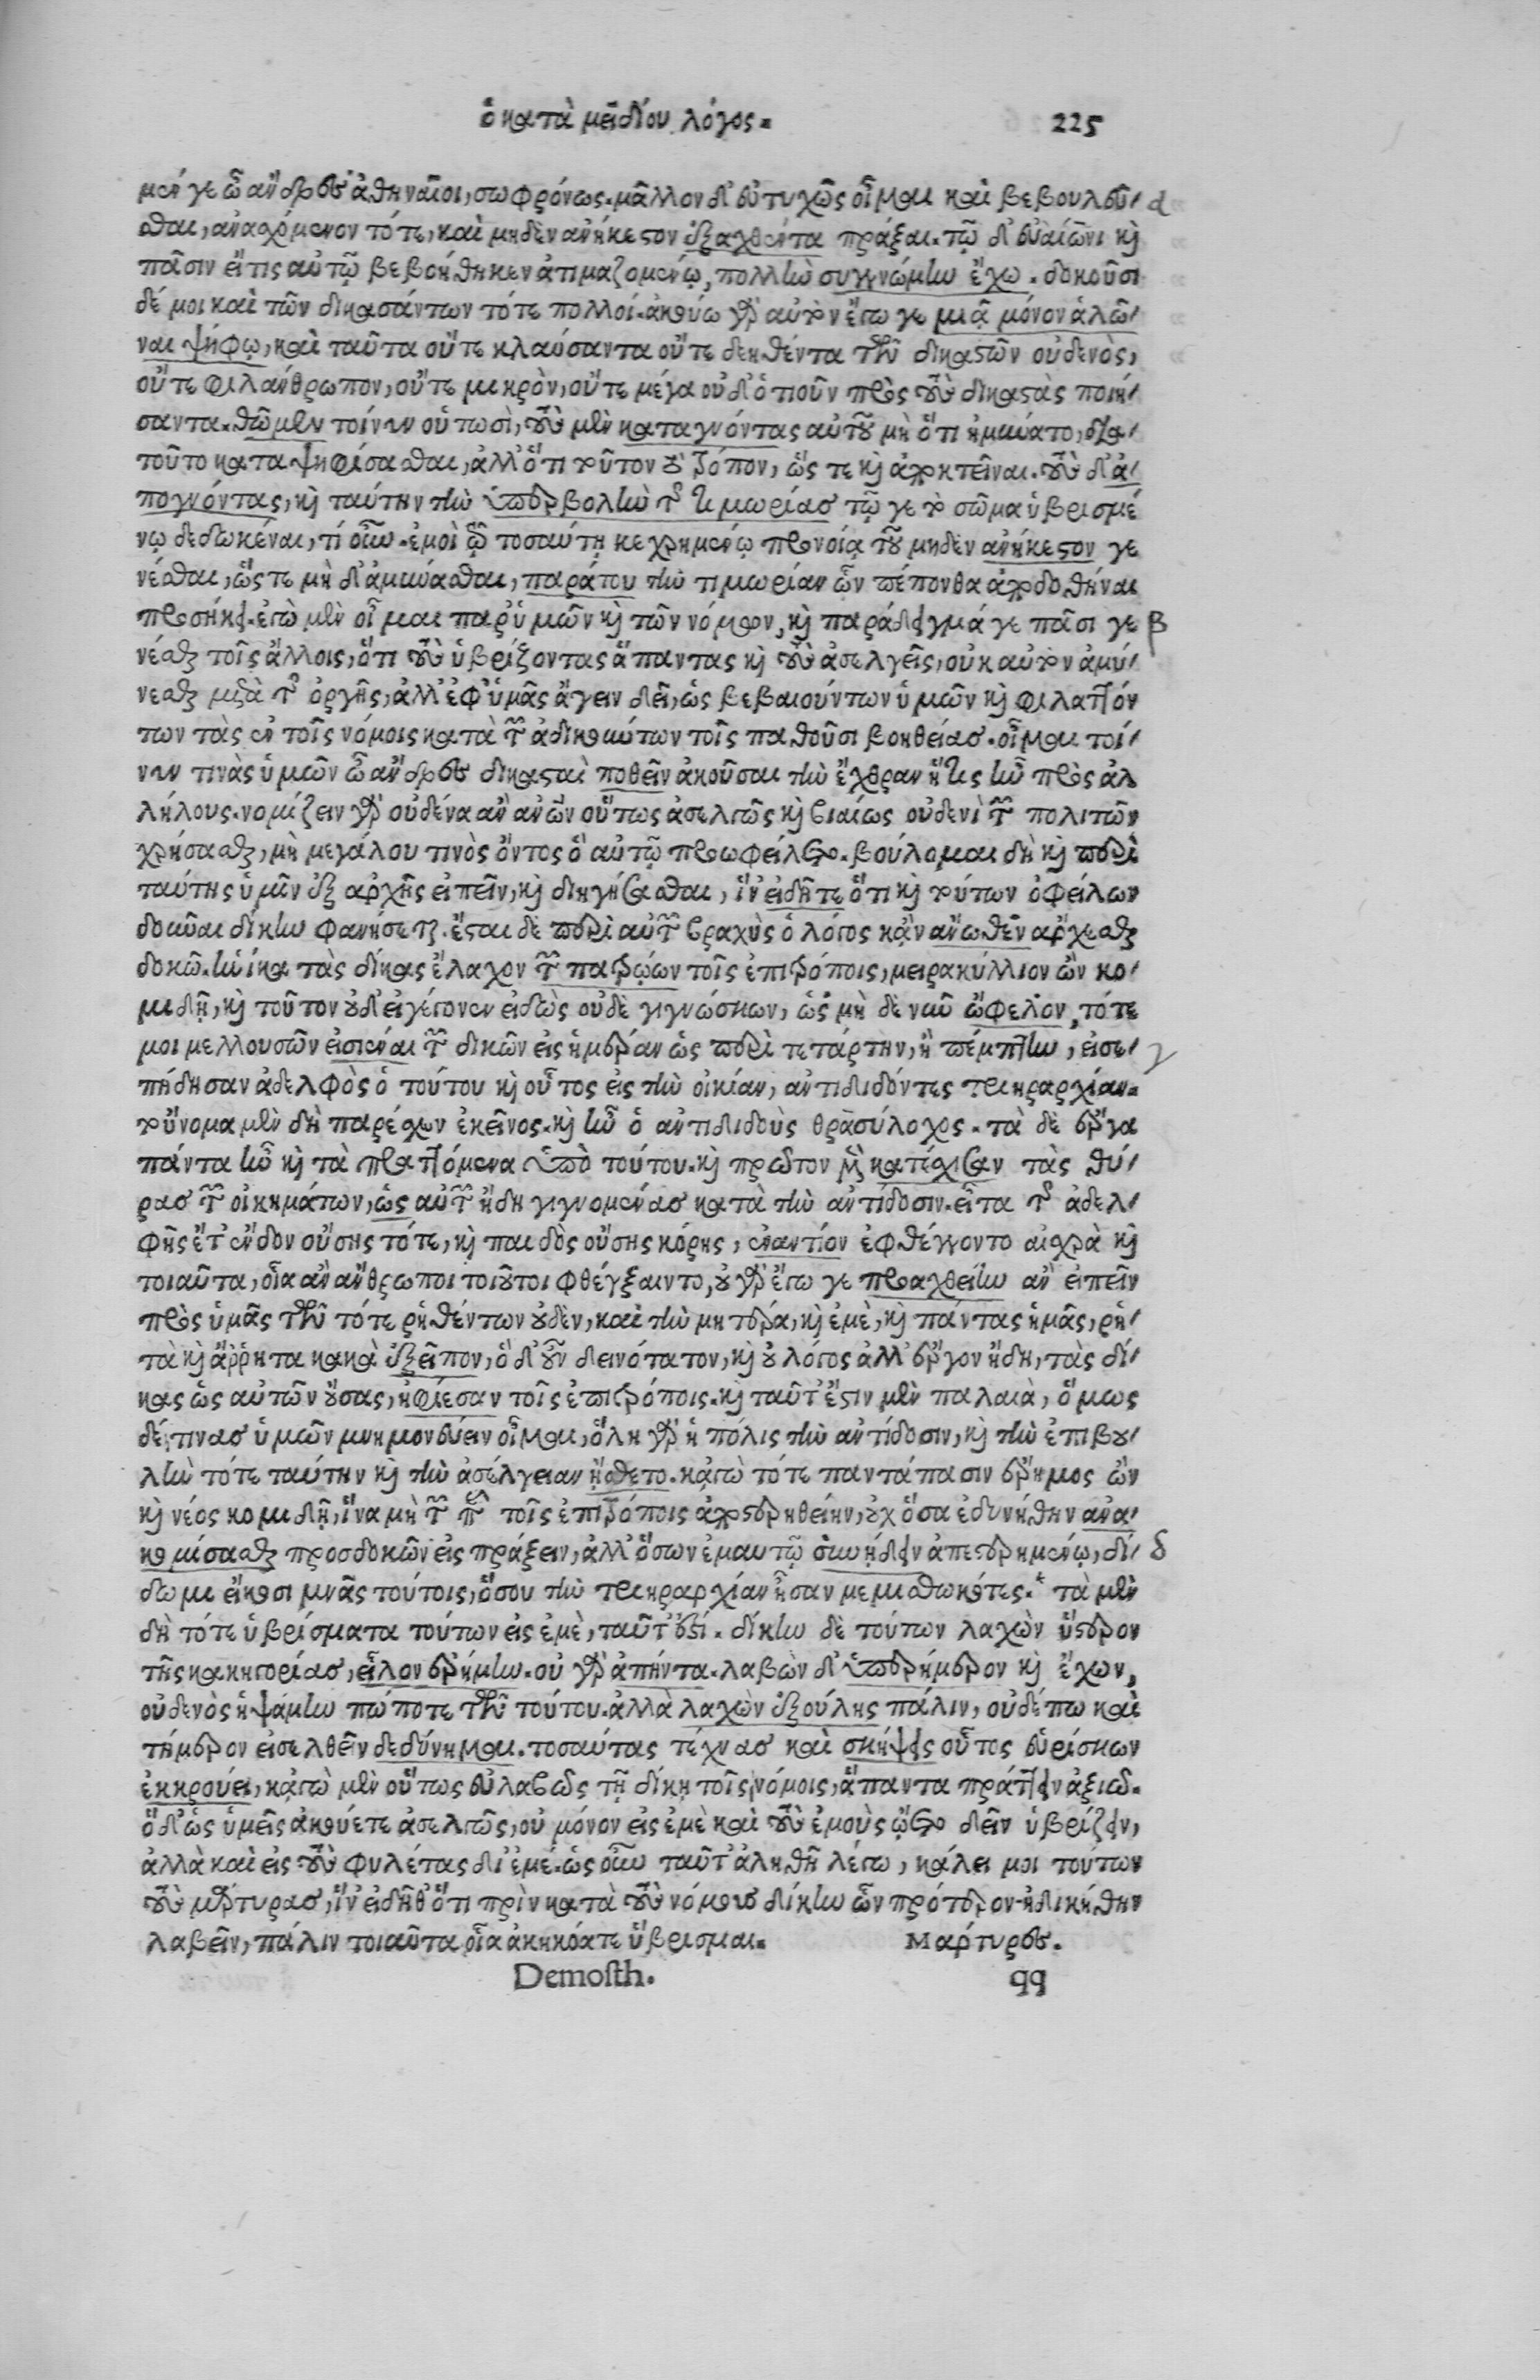 ὁ κατὰ μειδίου λόγος. 225
μέν γε ὦ ἄνδρες ἀθηναῖοι, σωφρόνως. μᾶλλον δ' εὐτυχῶς οἶμαι καὶ βεβουλεῦ- α
σθαι, ἀνασχόμενον τότε, καὶ μηδὲν ἀνήκεστον ἐξαχθέντα πρᾶξαι. τῷ δ' εὐαίωνι κỳ
πᾶσιν εἴ τις αὐτῷ βεβοήθηκεν ἀτιμαζομένῳ, πολλὴν συγγνώμην ἔχω. δοκοῦσι
δέ μοι καὶ τῶν δικασάντων τότε πολλοί. ἀκούω γὰρ αὐτὸν ἔγωγε μιᾷ μόνον ἁλῶ-
ναι ψήφῳ, καὶ ταῦτα οὔτε κλαύσαντα οὔτε δεηθέντα τῶν δικαστῶν οὐδενὸς,
οὔτε φιλάνθρωπον, οὔτε μικρὸν, οὔτε μέγα οὐδ' ὁτιοῦν πρὸς τοὺς δικαστὰς ποιή-
σαντα. θῶμεν τοίνυν οὑτωσὶ, τοὺς μὲν καταγνόντας αὐτοῦ μὴ ὅτι ἠμύνατο, διὰ
τοῦτο καταψηφίσασθαι, ἀλλ' ὅτι τοῦτον τὸν τρόπον, ὥς τε καὶ ἀποκτεῖναι. τοὺς δ' ἀ-
πογνόντας, καὶ ταύτην τὴν ὑπερβολὴν τῆς τιμωρίας τῷ γε τὸ σῶμα ὑβρισμέ
νῳ δεδωκέναι, τί οὖν. ἐμοὶ τῷ τοσαύτῃ κεχρημένῳ προνοίᾳ τοῦ μηδὲν ἀνήκεστον γε
νέσθαι, ὥς τε μὴ δ' ἀμύνασθαι, παρά του τὴν τιμωρίαν ὧν πέπονθα ἀποδοθῆναι
προσήκει. ἐγὼ μὲν οἶμαι παρ' ὑμῶν καὶ τῶν νόμων, καὶ παράδειγμά γε πᾶσι γε β
νέσθαι τοῖς ἄλλοις, ὅτι τοὺς ὑβρίζοντας ἅπαντας καὶ τοὺς ἀσελγεῖς, οὐκ αὐτὸν ἀμύ-
νεσθαι μετὰ τῆς ὀργῆς, ἀλλ' ἐφ' ὑμᾶς ἄγειν δεῖ, ὡς βεβαιούντων ὑμῶν καὶ φυλαττόν
των τὰς ἐν τοῖς νόμοις κατὰ τῶν ἀδικούντων τοῖς παθοῦσι βοηθείας. οἶμαι τοί-
νυν τινὰς ὑμῶν ὦ ἄνδρες δικασταὶ ποθεῖν ἀκοῦσαι τὴν ἔχθραν ἥτις ἦν πρὸς ἀλ
λήλους. νομίζειν γὰρ οὐδένα ἂν ἀνῶν οὕτως ἀσελγῶς καὶ βιαίως οὐδενὶ τῶν πολιτῶν
χρήσασθαι, μὴ μεγάλου τινὸς ὄντος ὃ αὐτῷ προωφείλετο. βούλομαι δὴ καὶ περὶ
ταύτης ὑμῖν ἐξ ἀρχῆς εἰπεῖν, καὶ διηγήσασθαι, ἵν' εἰδῆτε ὅτι καὶ τούτων ὀφείλων
δοῦναι δίκην φανήσεται. ἔσται δὲ περὶ αὐτῶν βραχὺς ὁ λόγος κᾂν ἄνωθεν ἄρχεσθαι
δοκῶ. ἡνίκα τὰς δίκας ἔλαχον τῶν πατρῴων τοῖς ἐπιτρόποις, μειρακύλλιον ὢν κο-
μιδῇ, καὶ τοῦτον οὐδ' εἰ γέγονεν εἰδὼς οὐδὲ γιγνώσκων, ὡς μὴ δὲ νῦν ὤφελον, τότε
μοι μελλουσῶν εἰσιέναι τῶν δικῶν εἰς ἡμέραν ὡς περὶ τετάρτην, ἢ πέμπτην, εἰσε- γ
πήδησαν ἀδελφὸς ὁ τούτου καὶ οὗτος εἰς τὴν οἰκίαν, ἀντιδιδόντες τριηραρχίαν.
τοὔνομα μὲν δὴ παρέχων ἐκεῖνος. καὶ ἦν ὁ ἀντιδιδοὺς θρασύλοχος. τὰ δὲ ἔργα
πάντα ἦν καὶ τὰ πραττόμενα ὑπὸ τούτου. καὶ πρῶτον μὲν κατέσχισαν τὰς θύ-
ρας τῶν οἰκημάτων, ὡς αὐτῶν ἤδη γιγνομένας κατὰ τὴν ἀντίδοσιν. εἶτα τῆς ἀδελ-
φῆς ἔτ' ἔνδον οὔσης τότε, καὶ παιδὸς οὔσης κόρης, ἐναντίον ἐφθέγγοντο αἰσχρὰ καὶ
τοιαῦτα, οἷα ἂν ἄνθρωποι τοιοῦτοι φθέγξαιντο, οὐ γὰρ ἔγωγε προαχθείην ἂν εἰπεῖν
πρὸς ὑμᾶς τῶν τότε ῥηθέντων οὐδὲν, καὶ τὴν μητέρα, καὶ ἐμὲ, καὶ πάντας ἡμᾶς, ῥη-
τὰ καὶ ἄῤῥητα κακὰ ἐξεῖπον, ὃ δ' οὖν δεινότατον, καὶ οὐ λόγος ἀλλ' ἔργον ἤδη, τὰς δί-
κας ὡς αὐτῶν οὔσας, ἠφίεσαν τοῖς ἐπιτρόποις. καὶ ταῦτ' ἔστιν μὲν παλαιὰ, ὅμως
δέ τινας ὑμῶν μνημονεύειν οἶμαι, ὅλη γὰρ ἡ πόλις τὴν ἀντίδοσιν, καὶ τὴν ἐπιβου-
λὴν τότε ταύτην καὶ τὴν ἀσέλγειαν ᾔσθετο. κἀγὼ τότε παντάπασιν ἔρημος ὢν
καὶ νέος κομιδῇ, ἵνα μὴ τῶν παρὰ τοῖς ἐπιτρόποις ἀποστερηθείην, οὐχ ὅσα ἐδυνήθην ἀνα-
κομίσασθαι προσδοκῶν εἰς πράξειν, ἀλλ' ὅσων ἐμαυτῷ συνῄδειν ἀπεστερημένῳ, δί- δ
δωμι εἴκοσι μνᾶς τούτοις, ὅσου τὴν τριηραρχίαν ἦσαν μεμισθωκότες.* τὰ μὲν
δὴ τότε ὑβρίσματα τούτων εἰς ἐμὲ, ταῦτ' ἐστί. δίκην δὲ τούτων λαχὼν ὕστερον
τῆς κακηγορίας, εἷλον ἐρήμην. οὐ γὰρ ἀπήντα. λαβὼν δ' ὑπερήμερον καὶ ἔχων,
οὐδενὸς ἡψάμην πώποτε τῶν τούτου. ἀλλὰ λαχὼν ἐξούλης πάλιν, οὐδέπω καὶ
τήμερον εἰσελθεῖν δεδύνημαι. τοσαύτας τέχνας καὶ σκήψεις οὗτος εὑρίσκων
ἐκκρούει, κἀγὼ μὲν οὕτως εὐλαβῶς τῇ δίκῃ τοῖς νόμοις, ἅπαντα πράττειν ἀξιῶ.
ὃ δ' ὡς ὑμεῖς ἀκούετε ἀσελγῶς, οὐ μόνον εἰς ἐμὲ καὶ τοὺς ἐμοὺς ᾤετο δεῖν ὑβρίζειν,
ἀλλὰ καὶ εἰς τοὺς φυλέτας δι' ἐμέ. ὡς οὖν ταῦτ' ἀληθῆ λέγω, κάλει μοι τούτων
τοὺς μάρτυρας, ἵν' εἰδῆθ' ὅτι πρὶν κατὰ τοὺς νόμους δίκην ὧν πρότερον ἠδικήθην
λαβεῖν, πάλιν τοιαῦτα οἷα ἀκηκόατε ὕβρισμαι. Μάρτυρες.
Demosth. qq